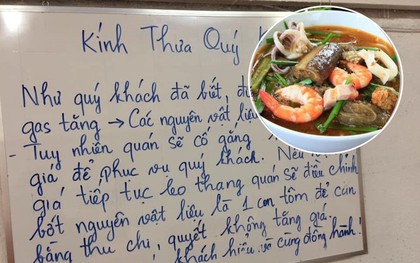 Kính Thưa Quý
Như quý khách đã bất,
gas tăng → Các nguyên vật liệu
- Tuy nhiên quán sẽ cố gắng
giá để phục vụ quý khách. Nếu
giá tiếp tục leo thang quán sẽ điều chỉnh
bớt nguyên vật liệu là 1 con tôm để cân
bằng thu chi, quyết không tăng giá.
khách hiểu và cùng đồng hành!